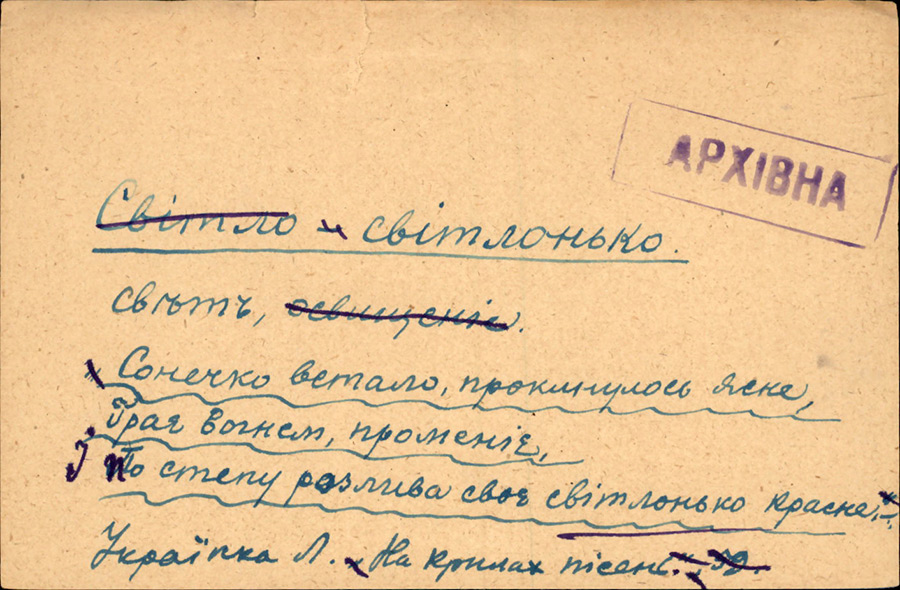 АРХІВНА
Світло - світлонько.
свѣтъ, освищеніе.
Сонечко встало, прокинулось ясне,
Грає вогнем, променіє,
І по степу розлива своє світлонько красне.
Українка Л. На крилах пісень.